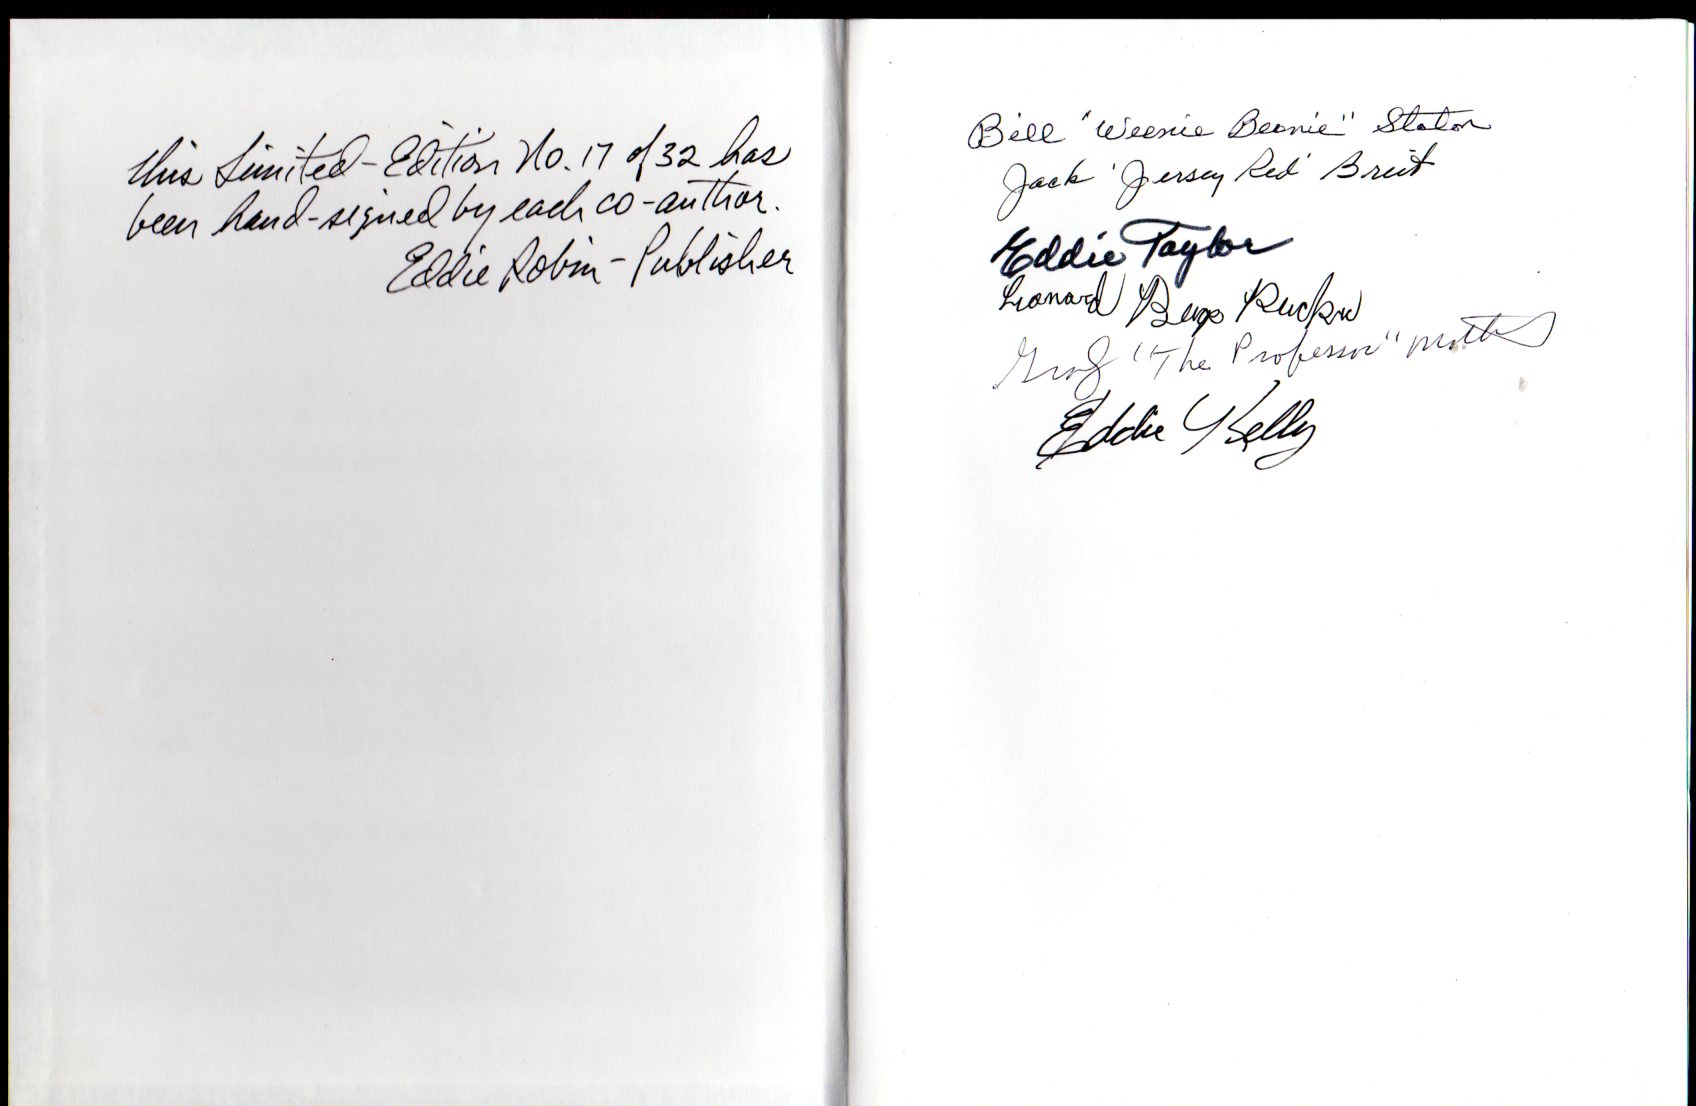 This Limited-Edition No. 17 of 32 has
been hand-signed by each co-author.
Eddie Robin - Publisher
Bill "Weenie Beenie" Staton
Jack 'Jersey Red' Breit
Eddie Taylor
Leonard Bugs Rucker
"The Professor"
Eddie Kelly